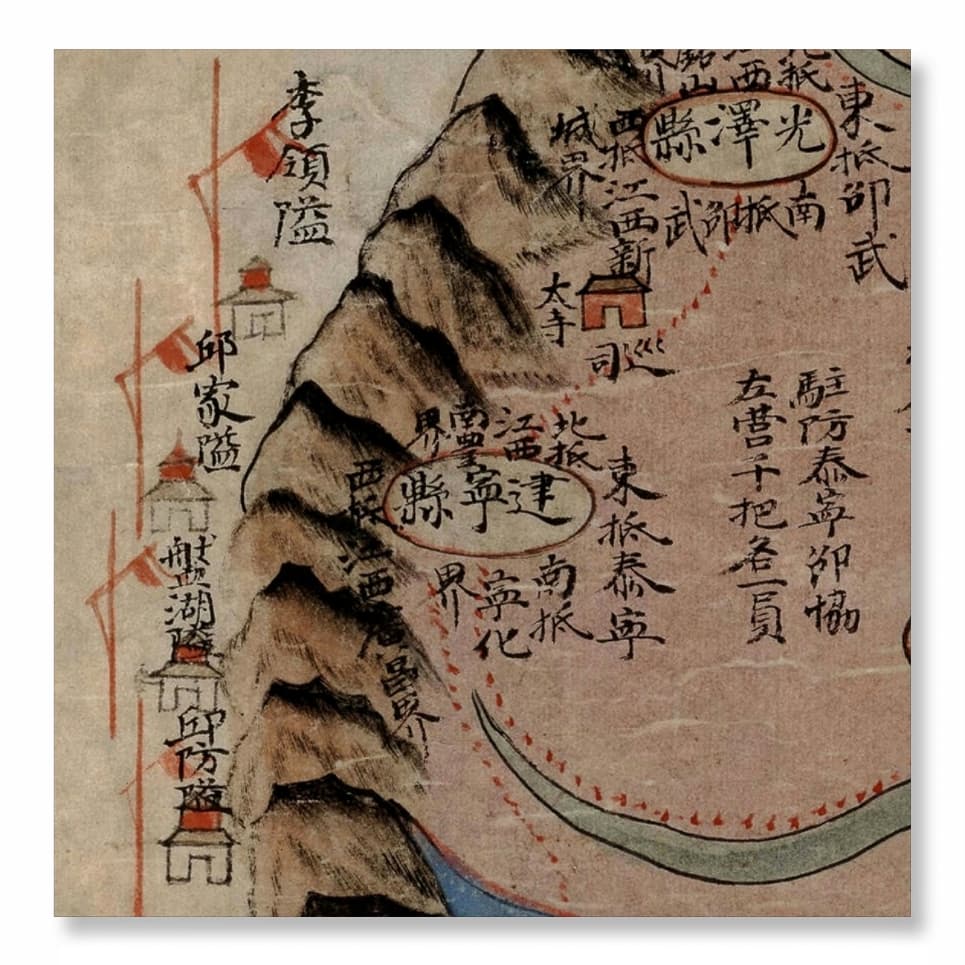 光澤縣
東抵邵武
南抵邵武
西抵江西新
城界
太寺
巡司
李領隘
邱家隘
盤湖隘
邱防隘
建寧縣
北抵
江西
南豐
界
東抵泰寧
南抵
寧化
界
西抵江西廣昌界
駐防泰寧邵協
左营千把各一員